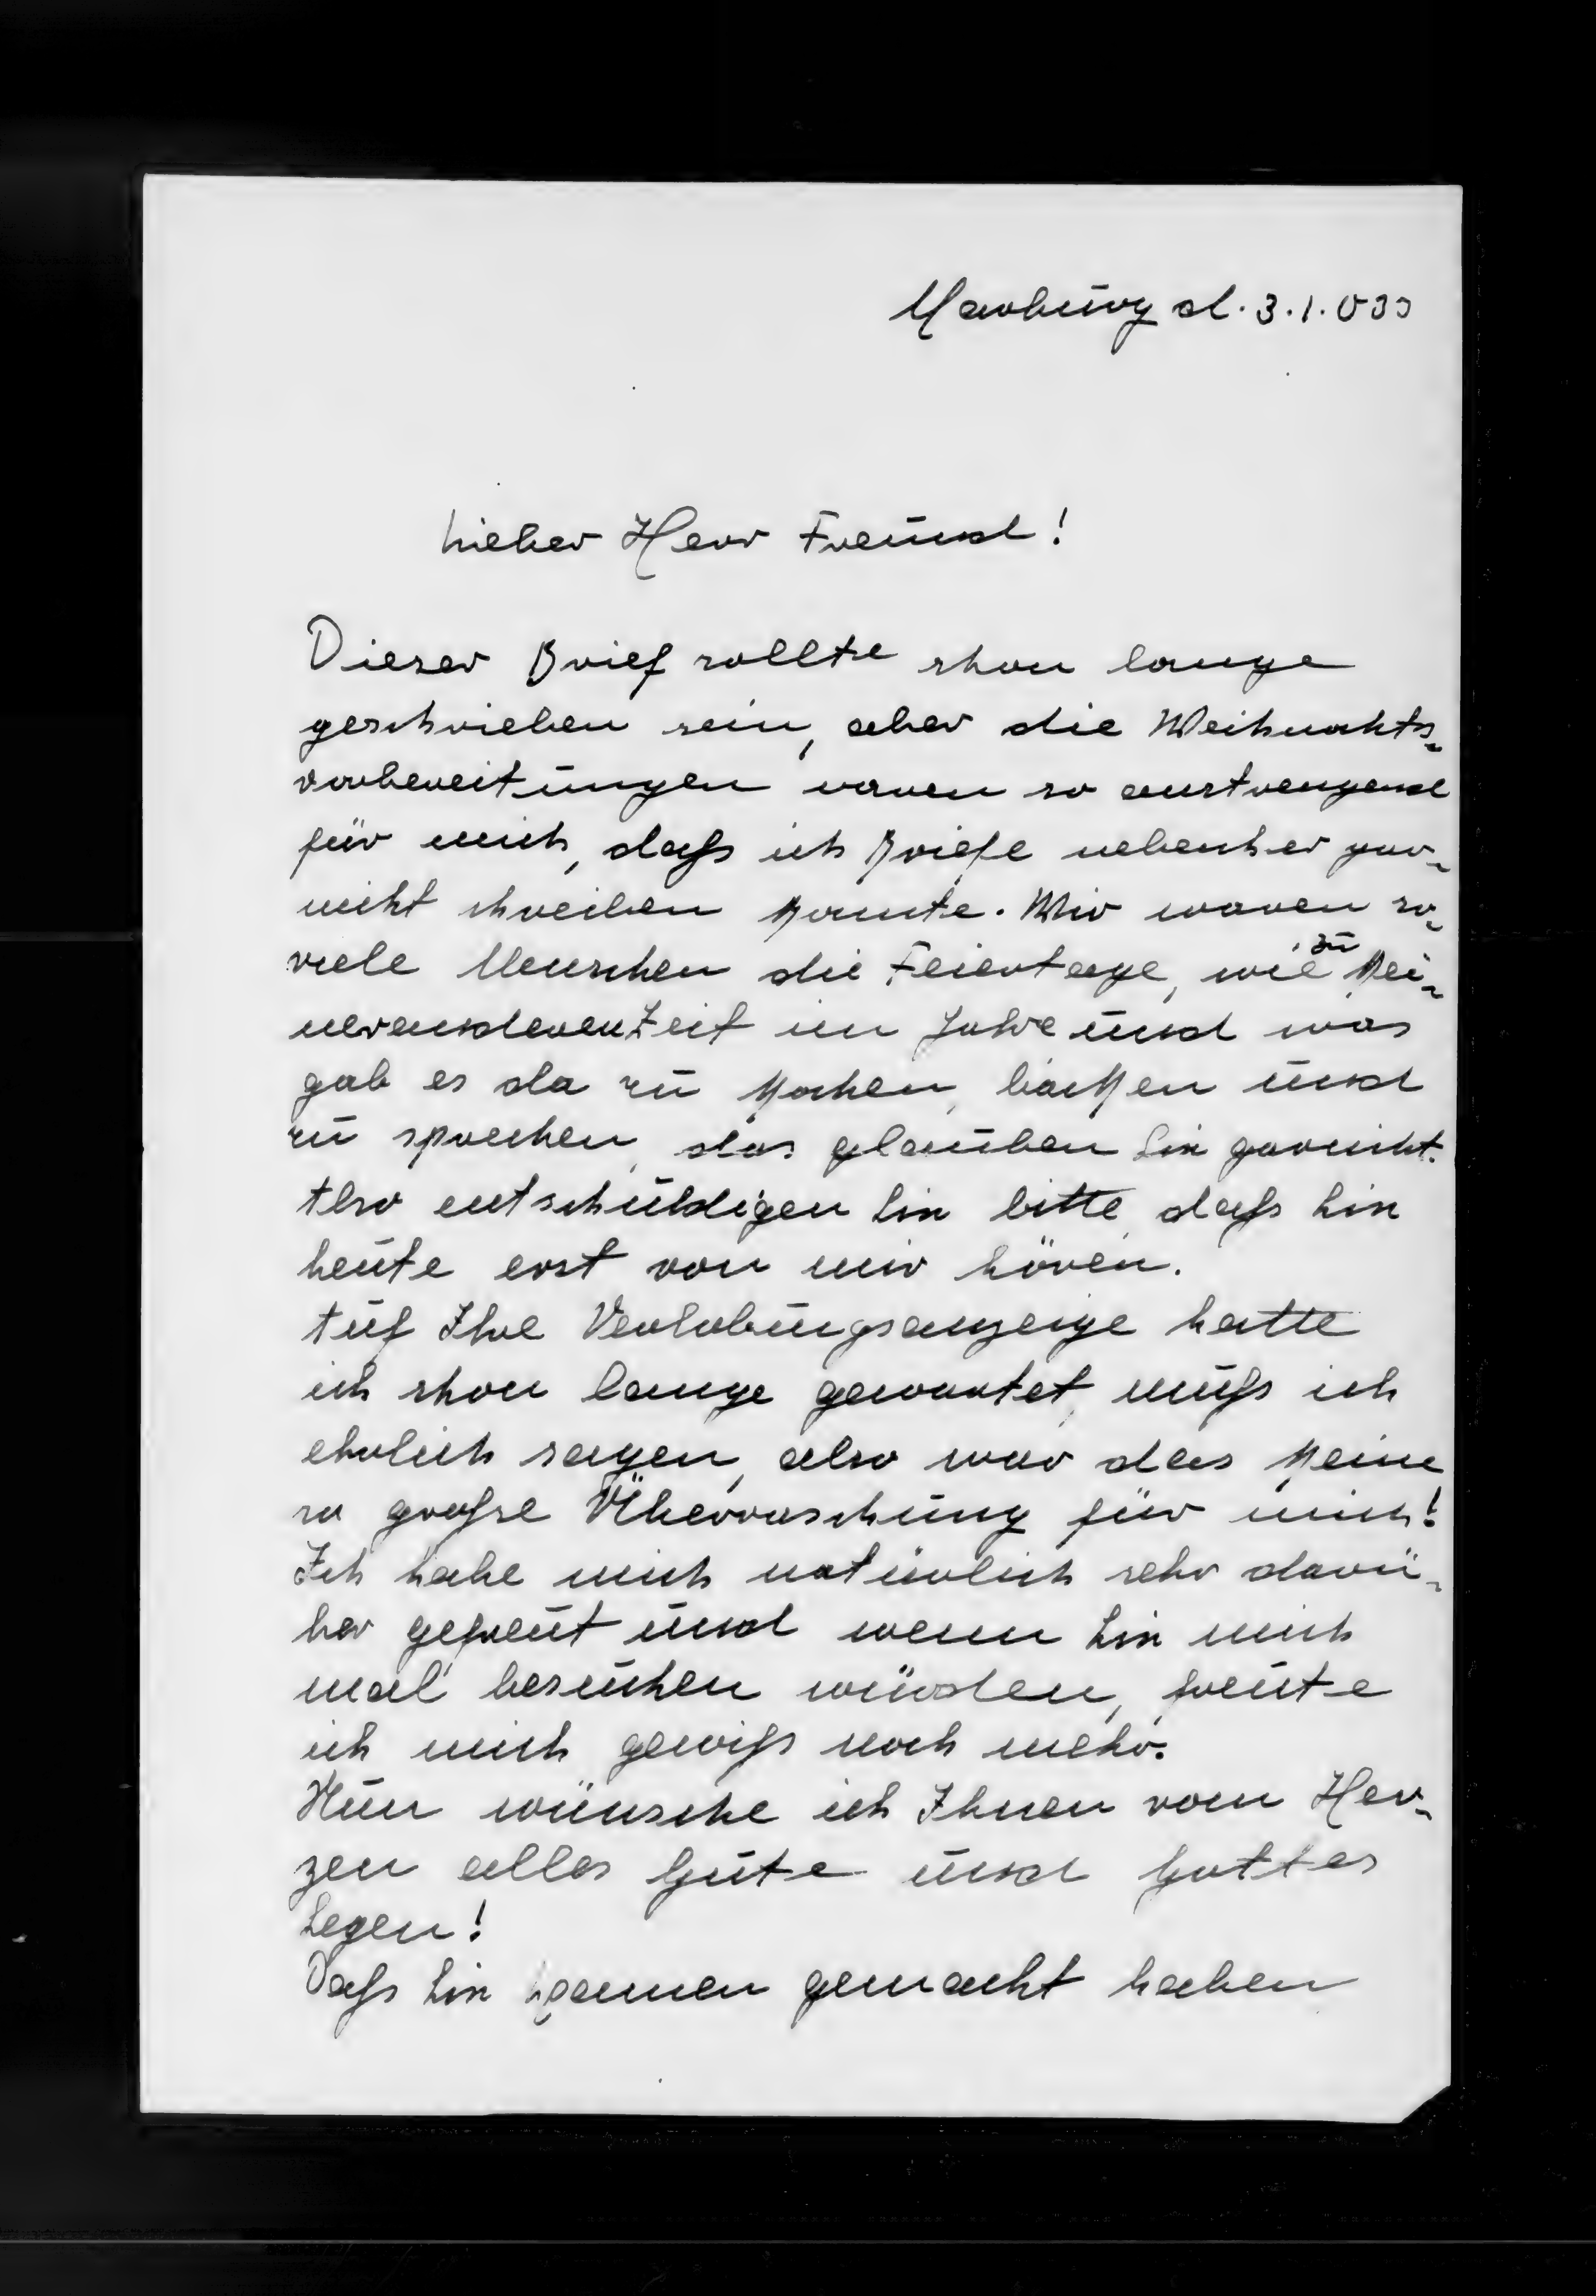 Marburg d. 3.1.
Lieber Herr Freund!
Dieser Brief sollte schon lange
geschrieben sein, aber die Weihnachts-
vorbereitungen waren so anstrengend
für mich, daß ich Briefe nebenher gar-
nicht schreiben konnte. Wir waren so-
viele Menschen die Feiertage, wie zu kei-
ner anderen Zeit im Jahre und was
gab es da zu kochen, backen und
zu sprechen, das glauben Sie garnicht.
Also entschuldigen Sie bitte, daß Sie
heute erst von mir hören.
Auf Ihre Verlobungsanzeige hatte
ich schon lange gewartet, muß ich
ehrlich sagen, also war das keine
so große Überraschung für mich!
Ich habe mich natürlich sehr darü-
ber gefreut und wenn Sie mich
mal besuchen würden, freute
ich mich gewiß noch mehr.
Nun wünsche ich Ihnen vom Her-
zen alles Gute und Gottes
Segen!
Daß Sie Examen gemacht haben